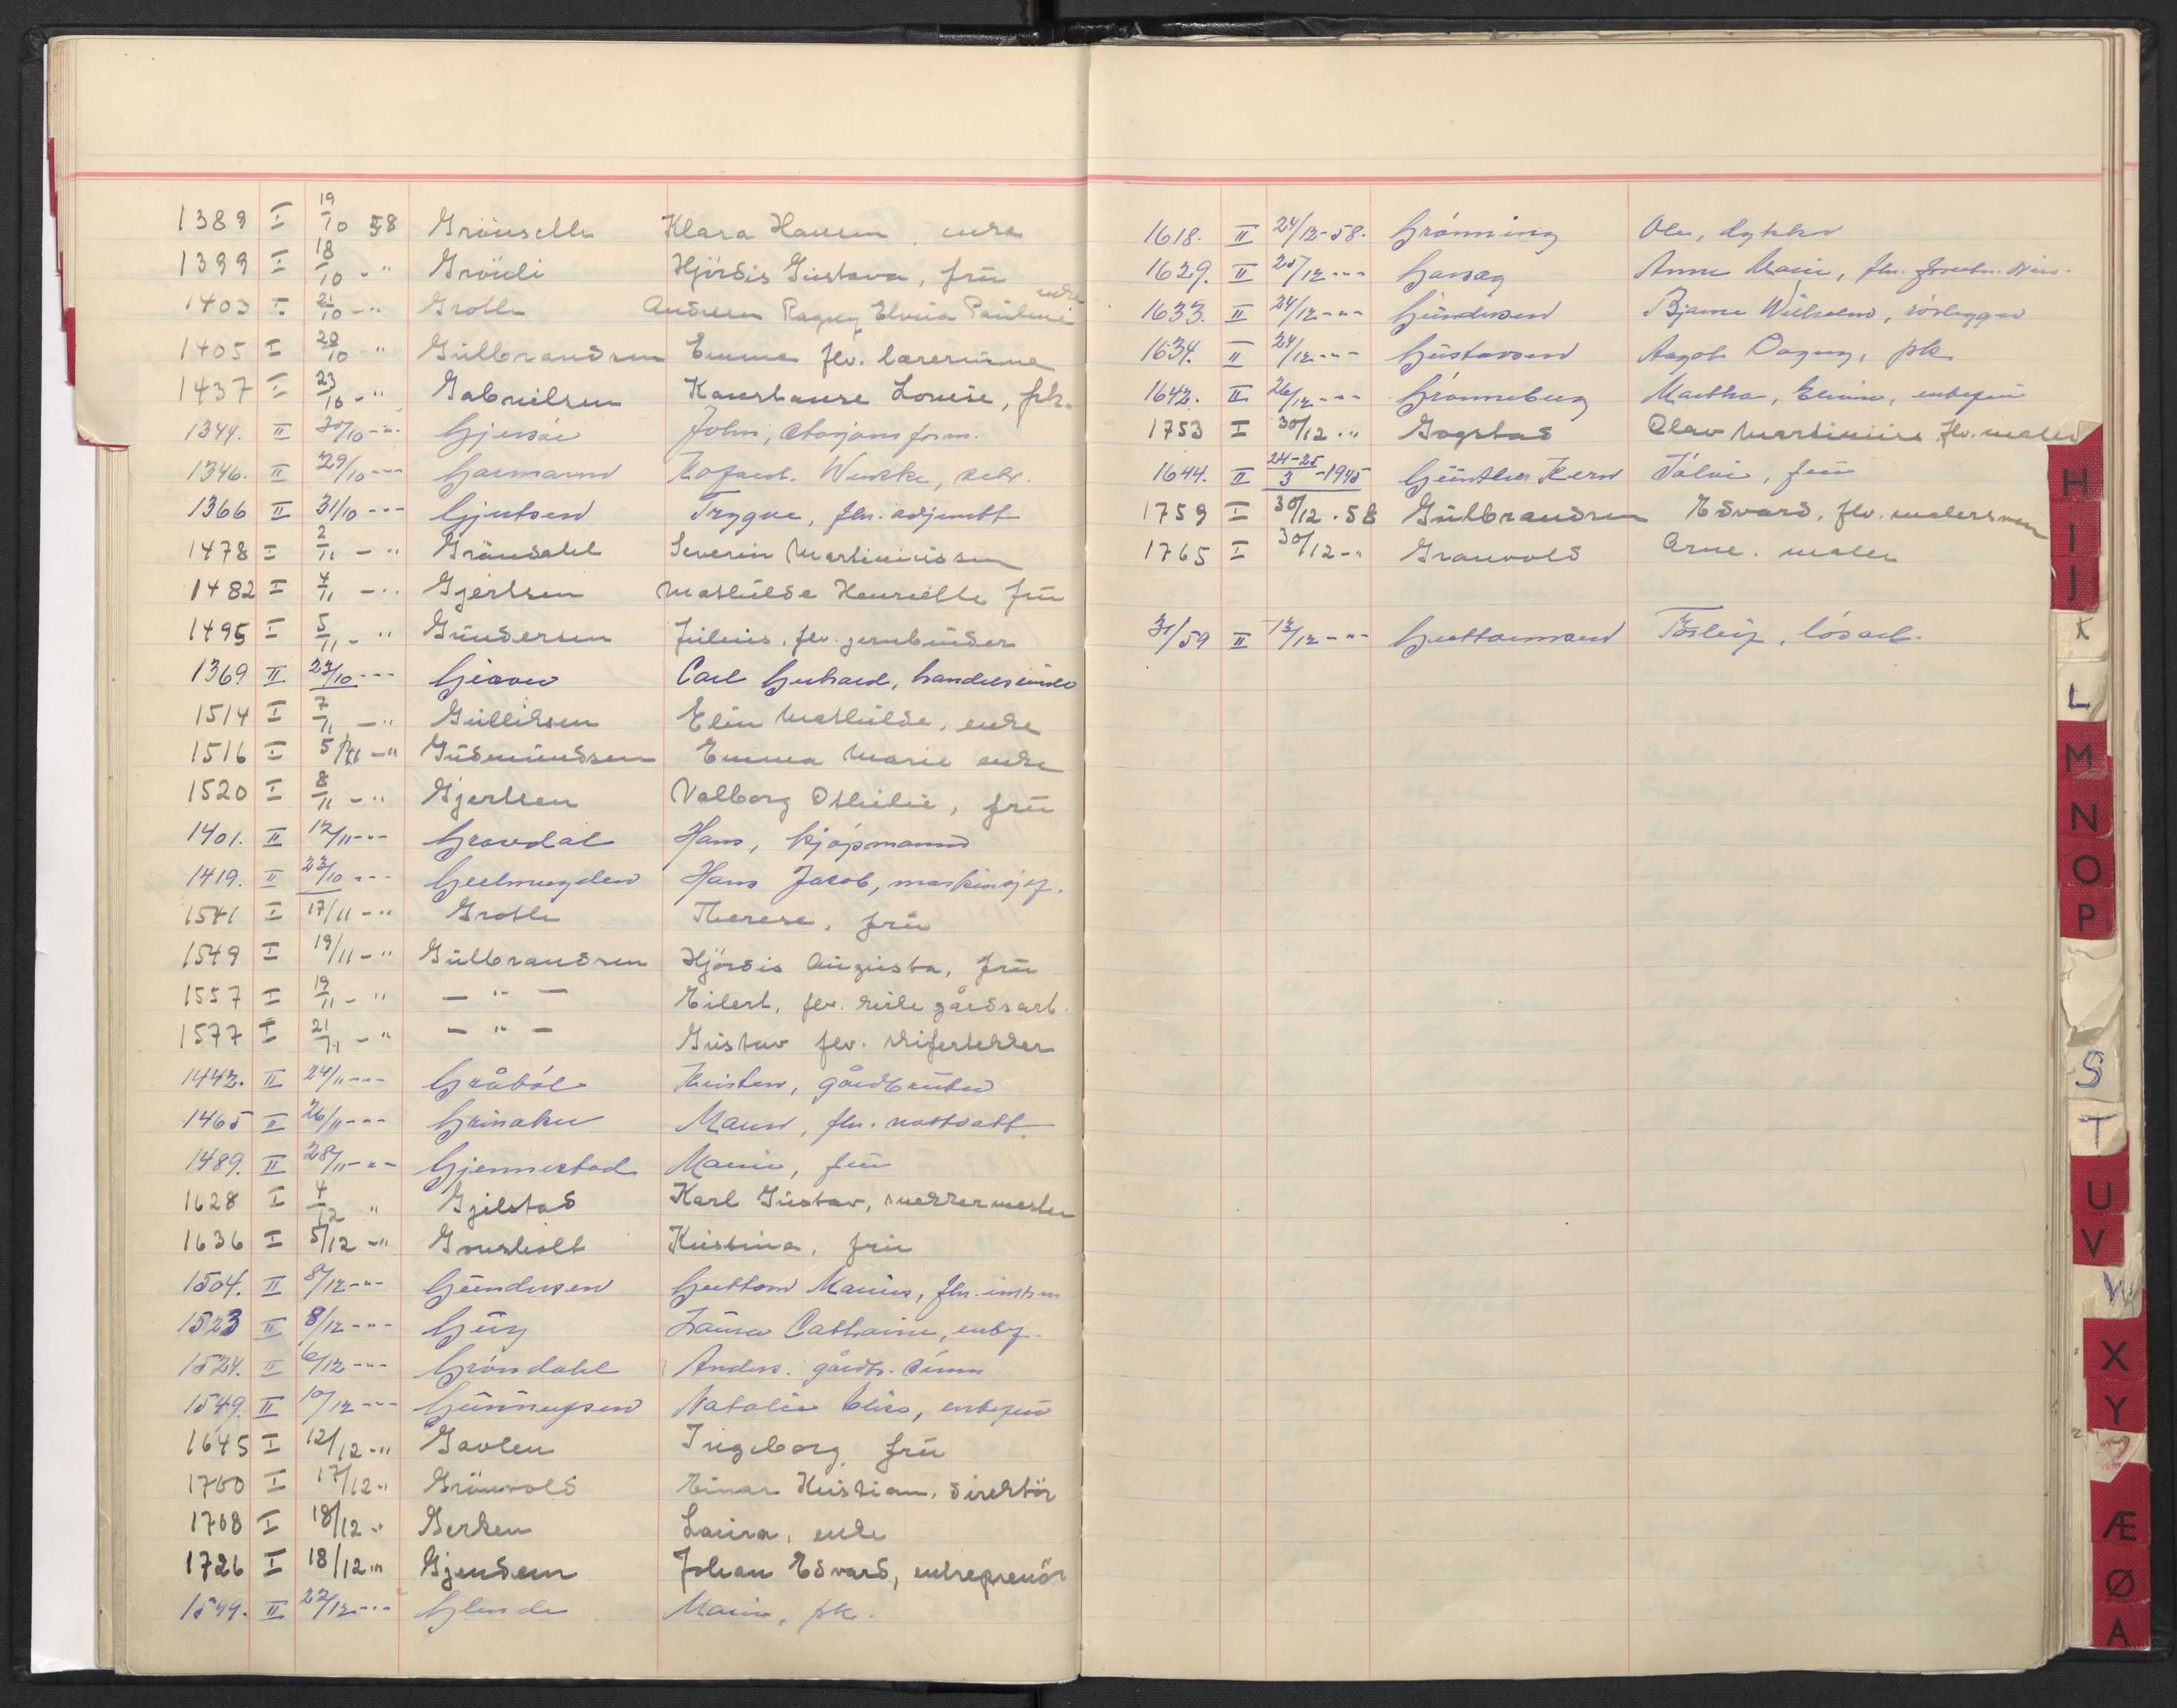 1389 I 19/10 58 Grönsette Klara Hansen, enke
1399 I 18/10 -" Gröidi Hjördis Gustava, frü
1403 I 21/10 -" Grotle Andrea Dagny Elvira Pauline enke
1405 I 28/10 " Gülbrandsen Emma flv. lærerinne
1437 I 23/10 -" Gabrielsen Konstanse Lovise, frk.
1344. II 30/10 -"- Gjersöe John,
1346. II II 29/10 -"- Garmann Wencke,
1366 II 31/10 -"- Gjertsen Trygve, fhv. adjunkt
1478 I 2/11 -" Gröndahl Severin Martiniussen
1482 I 4/11 -" Gjertsen Mathilde Henriette frü
1495 I 5/11 -" Gündersen Jülius, flv. jernbinder
1369 II 27/10 -"- Giæver Carl Gerhard,
1514 I 7/11 -" Gülliksen Elin Mathilde, enke
1516 I 5/11 -" Güdmündsen Emma Marie enke
1520 I 8/11 -" Gjertsen Valborg Othilie, frü
1401. II 12/11 -"- Gravdal Hans, kjøpmann
1419. II 23/10 -"- Geelmuyden Hans Jacob, maskinsjef.
1541 I 17/11 -" Grotle Therese, frü
1549 I 19/11 -" Gülbrandsen Hjördis Augusta, frü
1557 I 19/11 -" - " - Eilert, flv. gårdsarb.
1577 I 21/11 -" - " - Güstav flv. skifertekker
1442. II 24/11 -"- Gråbøl Kristen, gårdbruker
1465 II 26/11 -"- Grinaker Maren, fhv.
1489. II 28/11 -"- Gjennestad Marie, frü
1628 I 4/12 " Gjelstad Karl Güstav, snekkermester
1636 I 5/12 -" Gronsholt Kristina, frü
1504. II 8/12 -"- Gündersen Guttorm Marius, fhv.
1523 II 8/12 -"- Laura Cathrine, enkef.
1524. II 6/12 -"- Gröndahl Anders. gårdbr.
1549. II 10/12 -"- Natalie Elise, enkefrü
1645 I 12/12 -" Gavlen Ingeborg frü
1700 I 17/12 " Grönvold Einar Kristian, direktör
1708 I 18/12 " Gerken Laura, enke
1726 I 18/12 " Gjendem Johan Edvard, entreprenör
1599. II 22/12 -"- Glende Marie, frk.
1618. II 24/12 -58. Grønning Ole, dykker
1629. II 25/12 -"- Garsæg Anne Marie, fhv.
1633. II 24/12 -"- Gündersen Bjarne Wilhelm, rörlegger
1634. II 24/12 -"- Güstavsen Aagot Dagny, frk.
1642. II 26/12 -"- Grønneberg Martha, Elvine, enkefrü
1753 I 30/12 " Gogstad Olav Martinius flv. maler
1644. II 24-25/3 -1945 Günther Kern Sølvi, frü
1759 I 30/12 . 58 Gülbrandsen Edvard, flv. malersvenn
1765 I 30/12 -" Granvold Arne. maler
31/59 II 12/12 -"- Guttormsen Torleif, løsarb.
H
I
J
K
L
M
N
O
P
S
T
U
V
W
X
Y
Z
Æ
Ø
A